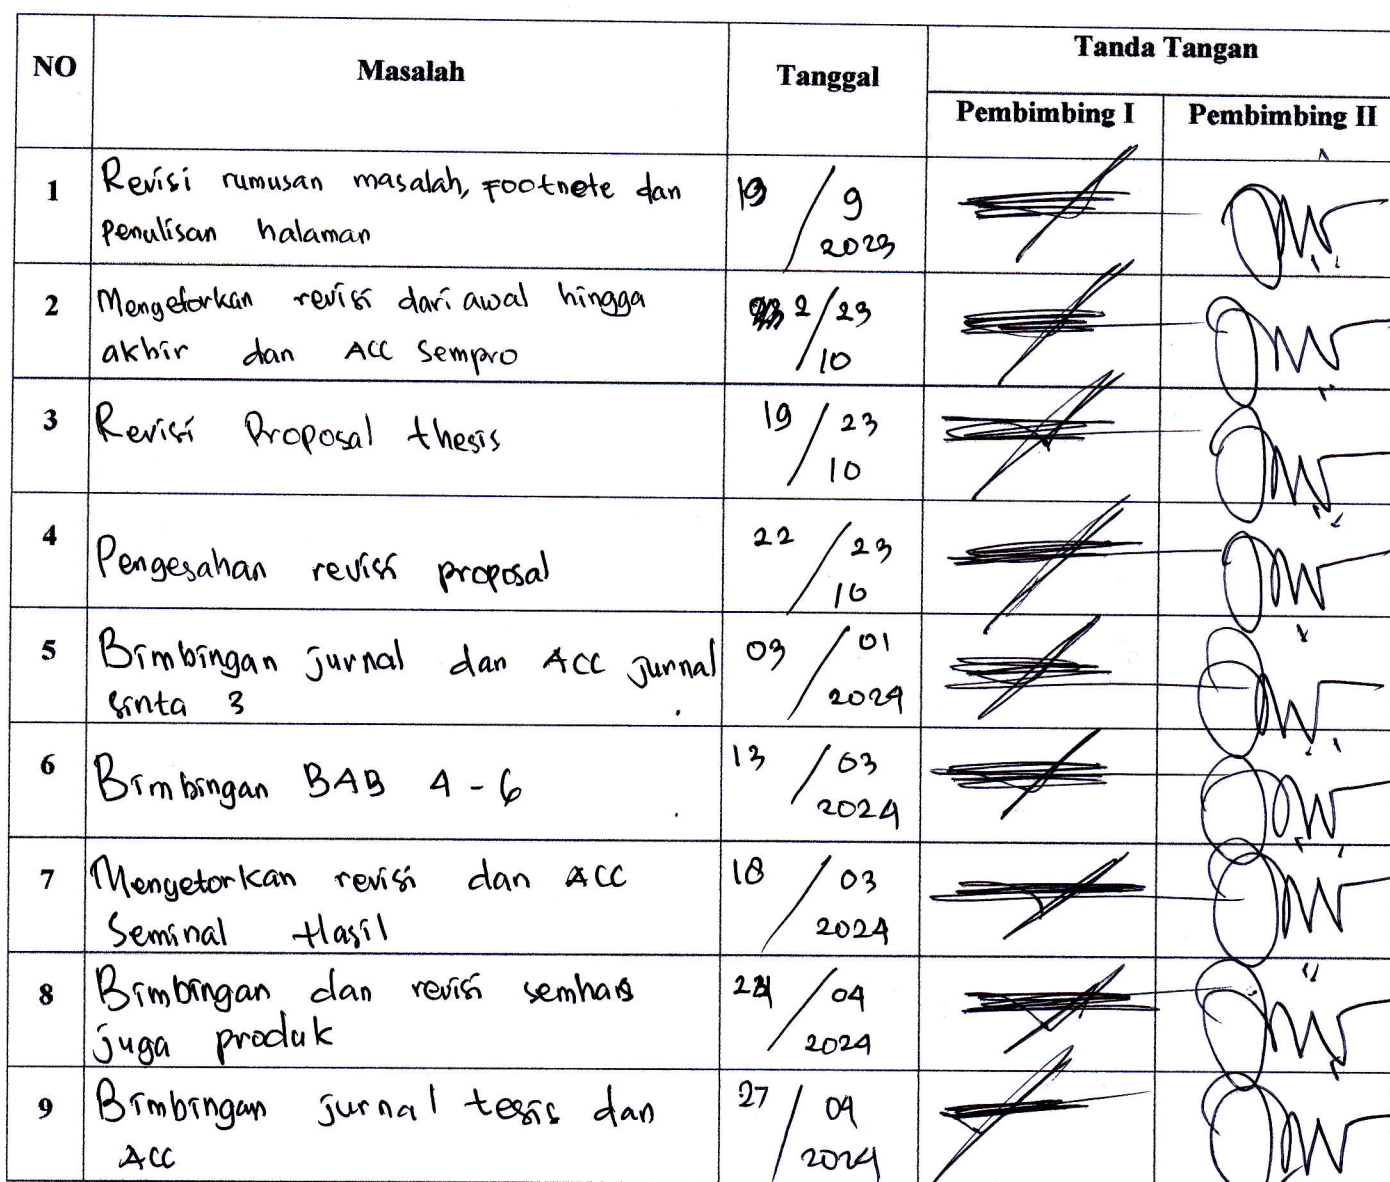 NO Masalah Tanggal Tanda Tangan
Pembimbing I Pembimbing II
1 Revisi rumusan masalah, Footnote dan 19 / 9
penulisan halaman 2023
2 Mengetorkan revisi dari awal hingga 2 / 23
akhir dan ACC Sempro 10
3 Revisi Proposal thesis 19 / 23
10
4 Pengesahan revisi proposal 22 / 23
10
5 Bimbingan jurnal dan ACC jurnal 03 / 01
sinta 3 2024
6 Bimbingan BAB 4 - 6 13 / 03
2024
7 Mengetorkan revisi dan ACC 18 / 03
Seminal Hasil 2024
8 Bimbingan dan revisi semhas / 04
juga produk 2024
9 Bimbingan jurnal tesis dan 27 / 04
ACC 2024